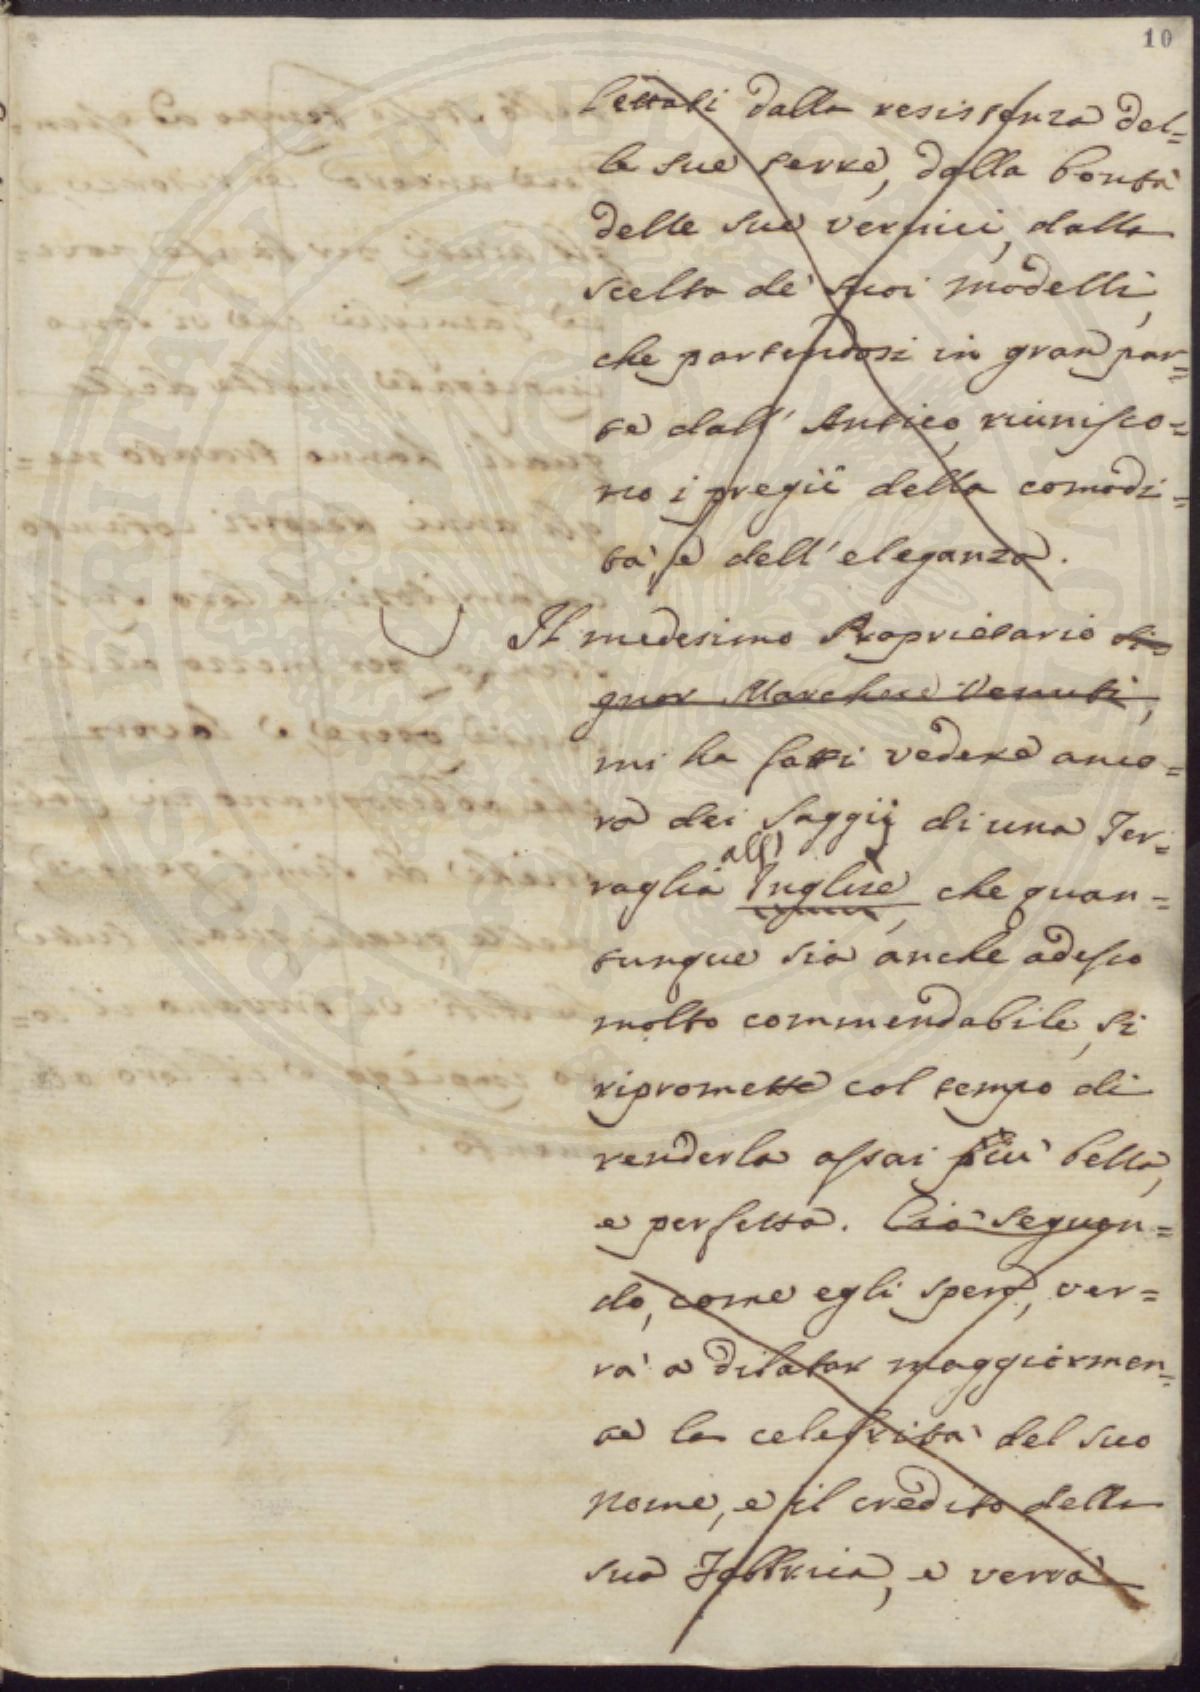 10
lettati dalla resistenza del=
le sue terre, dalla bontà
delle sue vernici, dalla
scelta de' suoi modelli,
che partendosi in gran par=
te dall' Antico, riunisco=
no i pregii della comodi=
tà, e dell' eleganza.
Il medesimo Proprietario Si=
gnor Marchese Venuti,
mi ha fatti vedere anco=
ra dei saggii di una Ter=
raglia all' Inglese, che quan=
tunque sia anche adesso
molto commendabile, si
ripromette col tempo di
renderla assai più bella,
e perfetta. Ciò seguen=
do, come egli spera, ver=
rà a dilatar maggiormen=
te la celebrità del suo
nome, e il credito della
sua Fabbrica, e verrà